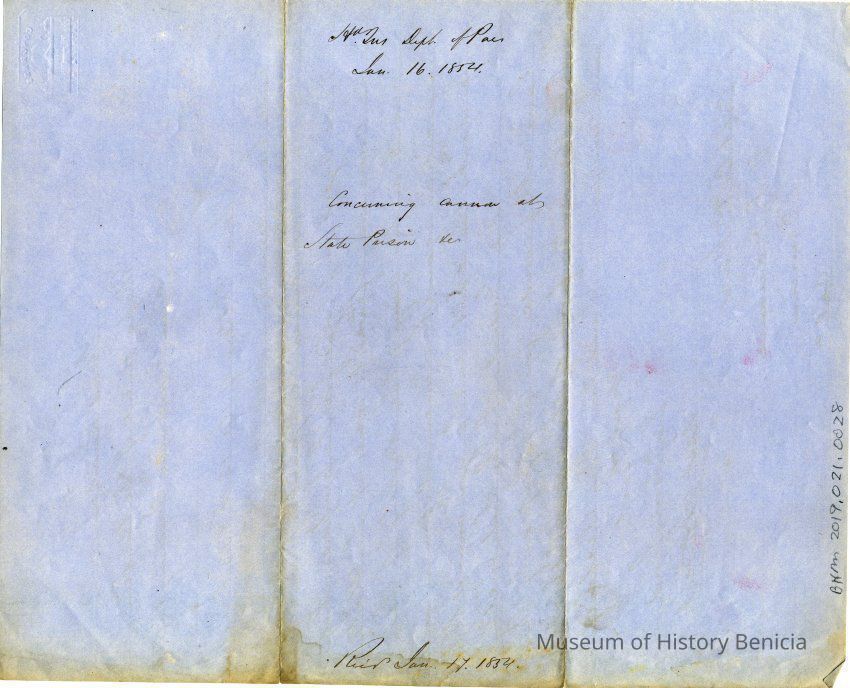 Hd Qrs Dept. of Pac
Jan. 16. 1854.
Concerning cannon at
State Prison &c
Recd Jan. 17. 1854.
BHM 2019.021.0028
Museum of History Benicia